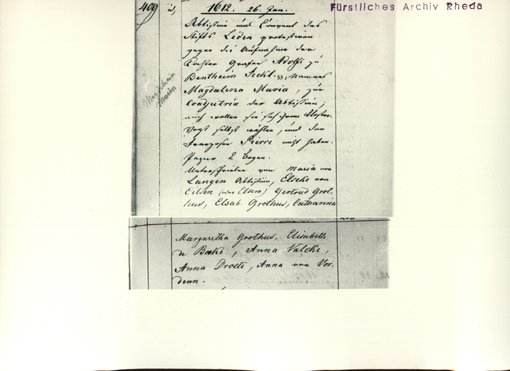 Fürstliches Archiv Rheda
409 1612. 26. Jan.
Abbtissin und Convent des
Stifts Leden protestiren
gegen die Aufnahme der
Tochter Grafen Adolfs zu
Bentheim Teckl. Namens
Magdalena Maria, zur
Coadjutrix der Abbtissin;
auch wollen sie sich ihren
Vogt selbst wählen, und den
Franzosen Pierre nicht haben.
Papier 2 Bogen.
Unterschrieben von Maria von
Langen Abbtissin, Elseke von
Gertrud Grot-
hus, Elsab. Grothus, Catharina
Margaretha Grothus, Elisabeth
de Anna Valcke,
Anna Droste, Anna von Vor-
denn.